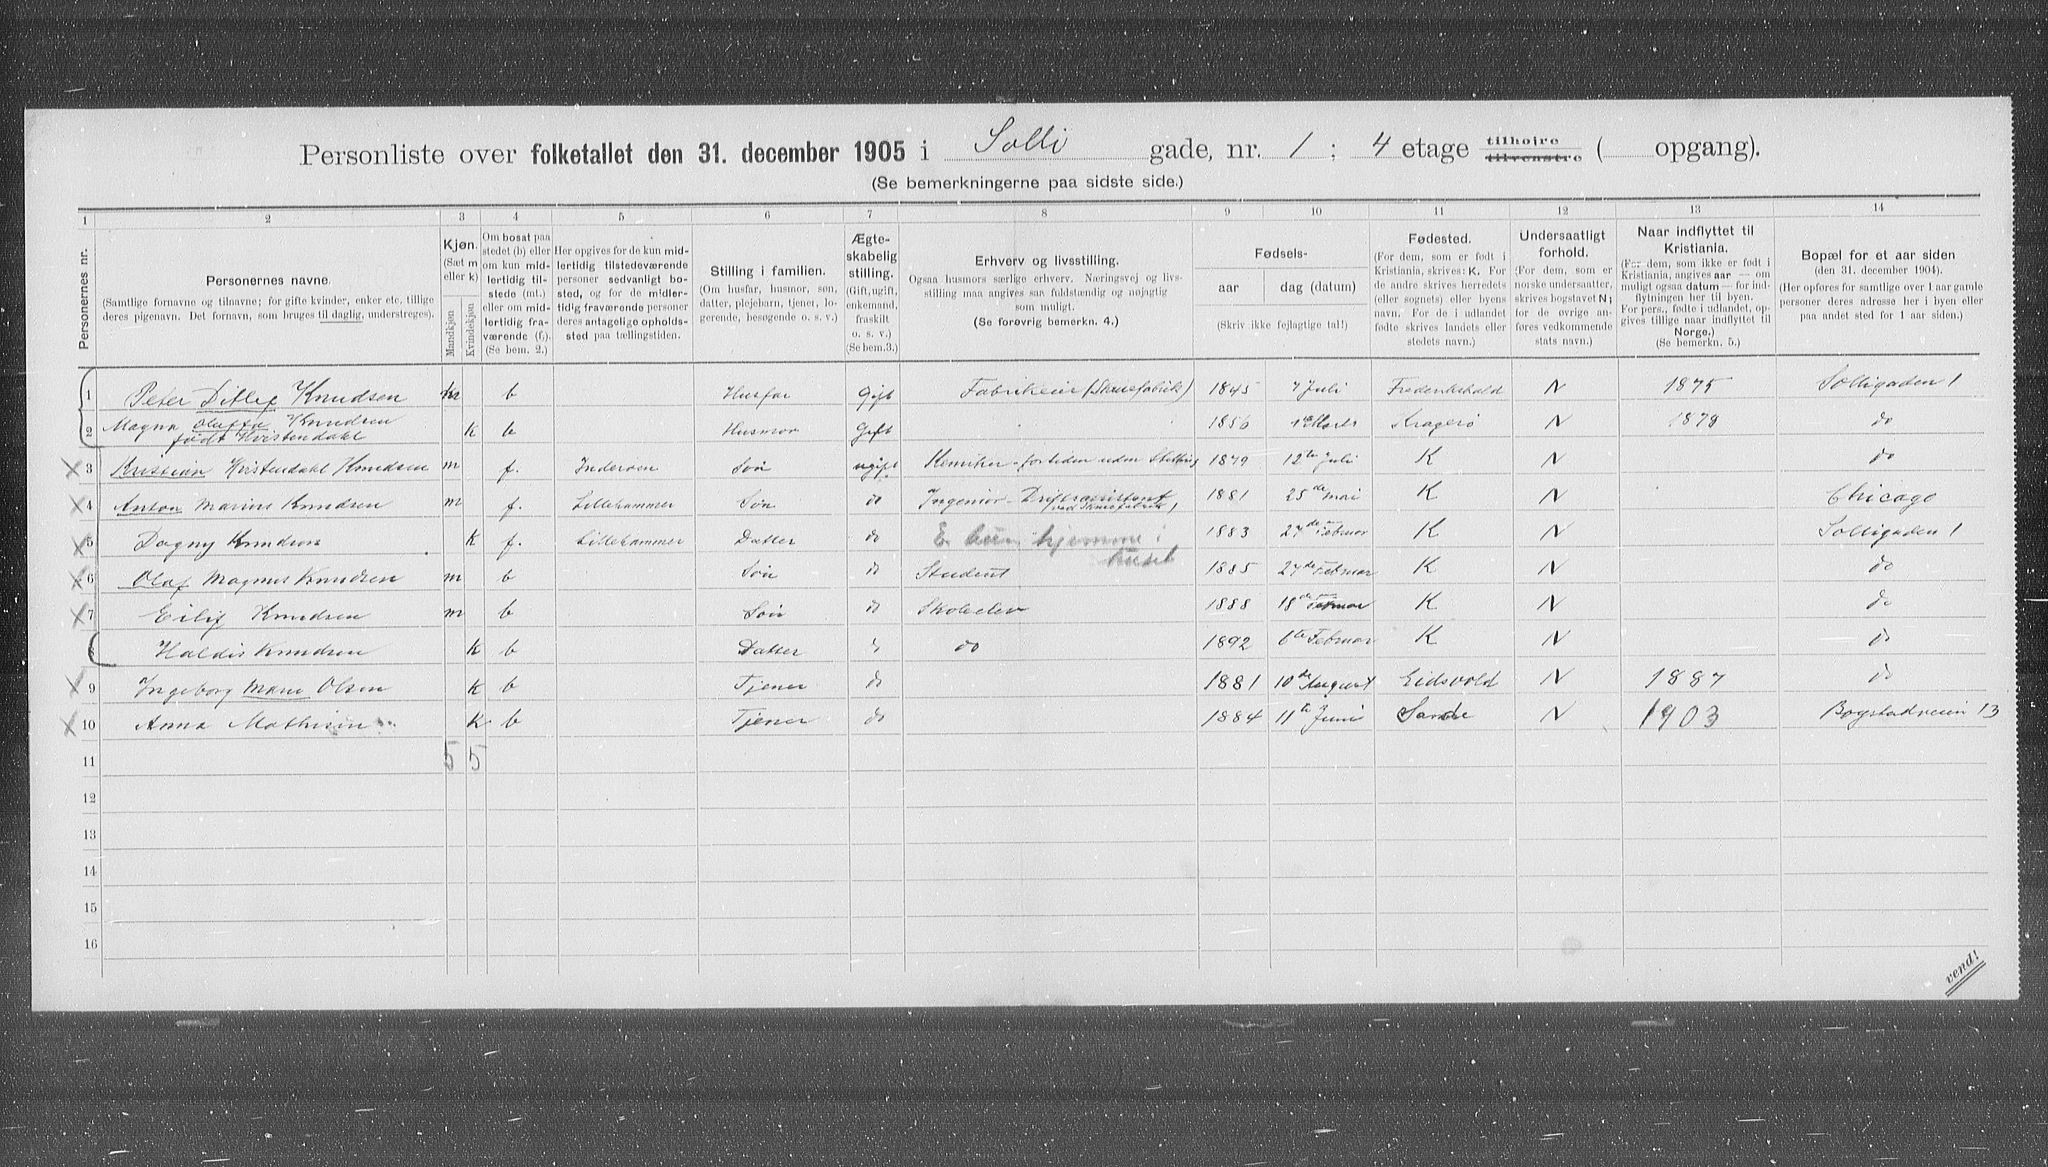 Personliste over folketallet den 31. december 1905 i Solli gade, nr. 1 ; 4 etage tilhøjre tilvenstre ( opgang).
(Se bemerkningerne paa sidste side.)
1 2 3 4 5 6 7 8 9 10 11 12 13 14
Personernes nr.
Personernes navne.
(Samtlige fornavne og tilnavne; for gifte kvinder, enker etc. tillige
deres pigenavn. Det fornavn, som bruges til daglig, understreges).
Kjøn.
(Sæt m
eller k)
Mandkjøn
Kvindekjøn
Om bosat paa
stedet (b) eller
om kun mid-
lertidig til-
stede (mt.)
eller om mid-
lertidig fra-
værende (f.).
(Se bem. 2.)
Her opgives for de kun mid-
lertidig tilstedeværende
personer sedvanligt bo-
sted, og for de midler-
tidig fraværende personer
deres antagelige opholds-
sted paa tællingstiden.
Stilling i familien.
(Om husfar, husmor, søn,
datter, plejebarn, tjener, lo-
gerende, besøgende o. s. v.)
Ægte-
skabelig
stilling.
(Gift, ugift,
enkemand,
fraskilt
o. s. v.)
(Se bem.3.)
Erhverv og livsstilling.
Ogsaa husmors særlige erhverv. Næringsvej og livs-
stilling maa angives saa fuldstændig og nøjagtig
som muligt.
(Se forøvrig bemerkn. 4.)
Fødsels-
aar
dag (datum)
(Skriv ikke fejlagtige tal!)
Fødested.
(For dem, som er født i
Kristiania, skrives: K. For
de andre skrives herredets
(eller sognets) eller byens
navn. For de i udlandet
fødte skrives landets eller
stedets navn.)
Undersaatligt
forhold.
(For dem, som er
norske undersaatter,
skrives bogstavet N;
for de øvrige an-
føres vedkommende
stats navn.)
Naar indflyttet til
Kristiania.
(For dem, som ikke er født i
Kristiania, angives aar — om
muligt ogsaa datum — for ind-
flytningen her til byen.
For pers., fødte i udlandet, op-
gives tillige naar indflyttet til
Norge.)
(Se bemerkn. 5.)
Bopæl for et aar siden
(den 31. december 1904).
(Her opføres for samtlige over 1 aar gamle
personer deres adresse her i byen eller
paa andet sted for 1 aar siden.)
1 Peter Ditlef Knudsen m b Husfar Gift Fabrikeier (Skruefabrik) 1845 7 Juli Frederikshald N 1875 Solligaden 1
2 Magna Oluffa Knudsen født Kvistendahl K b Husmor Gift 1856 Marts Kragerø N 1879 do
3 Kristian Kvistendahl Knudsen m f. Inderøen Søn ugift Kemiker - for tiden uden Stilling 1879 12te Juli K N do
4 Anton Marius Knudsen m f. Lillehammer Søn do Ingeniør - Driftsassistent ved Skruefabrik 1881 25de mai K N Chicago
5 Dagny Knudsen K f. Lillehammer Datter do E. hun hjemme i huset 1883 27de Februar K N Solligaden 1
6 Olaf Magnus Knudsen m b Søn do Student 1885 27de Februar K N do
7 Eilif Knudsen m b Søn do Skoleelev 1888 18de Februar K N do
8 Haldis Knudsen K b Datter do 1892 6te Februar K N do
9 Ingeborg Marie Olsen K b Tjener do 1881 10de August Eidsvold N 1887 do
10 Anna Mathisen K b Tjener do 1884 11te Juni Sande N 1903 Bogstadveien 13
11 5 5
12
13
14
15
16
vend!